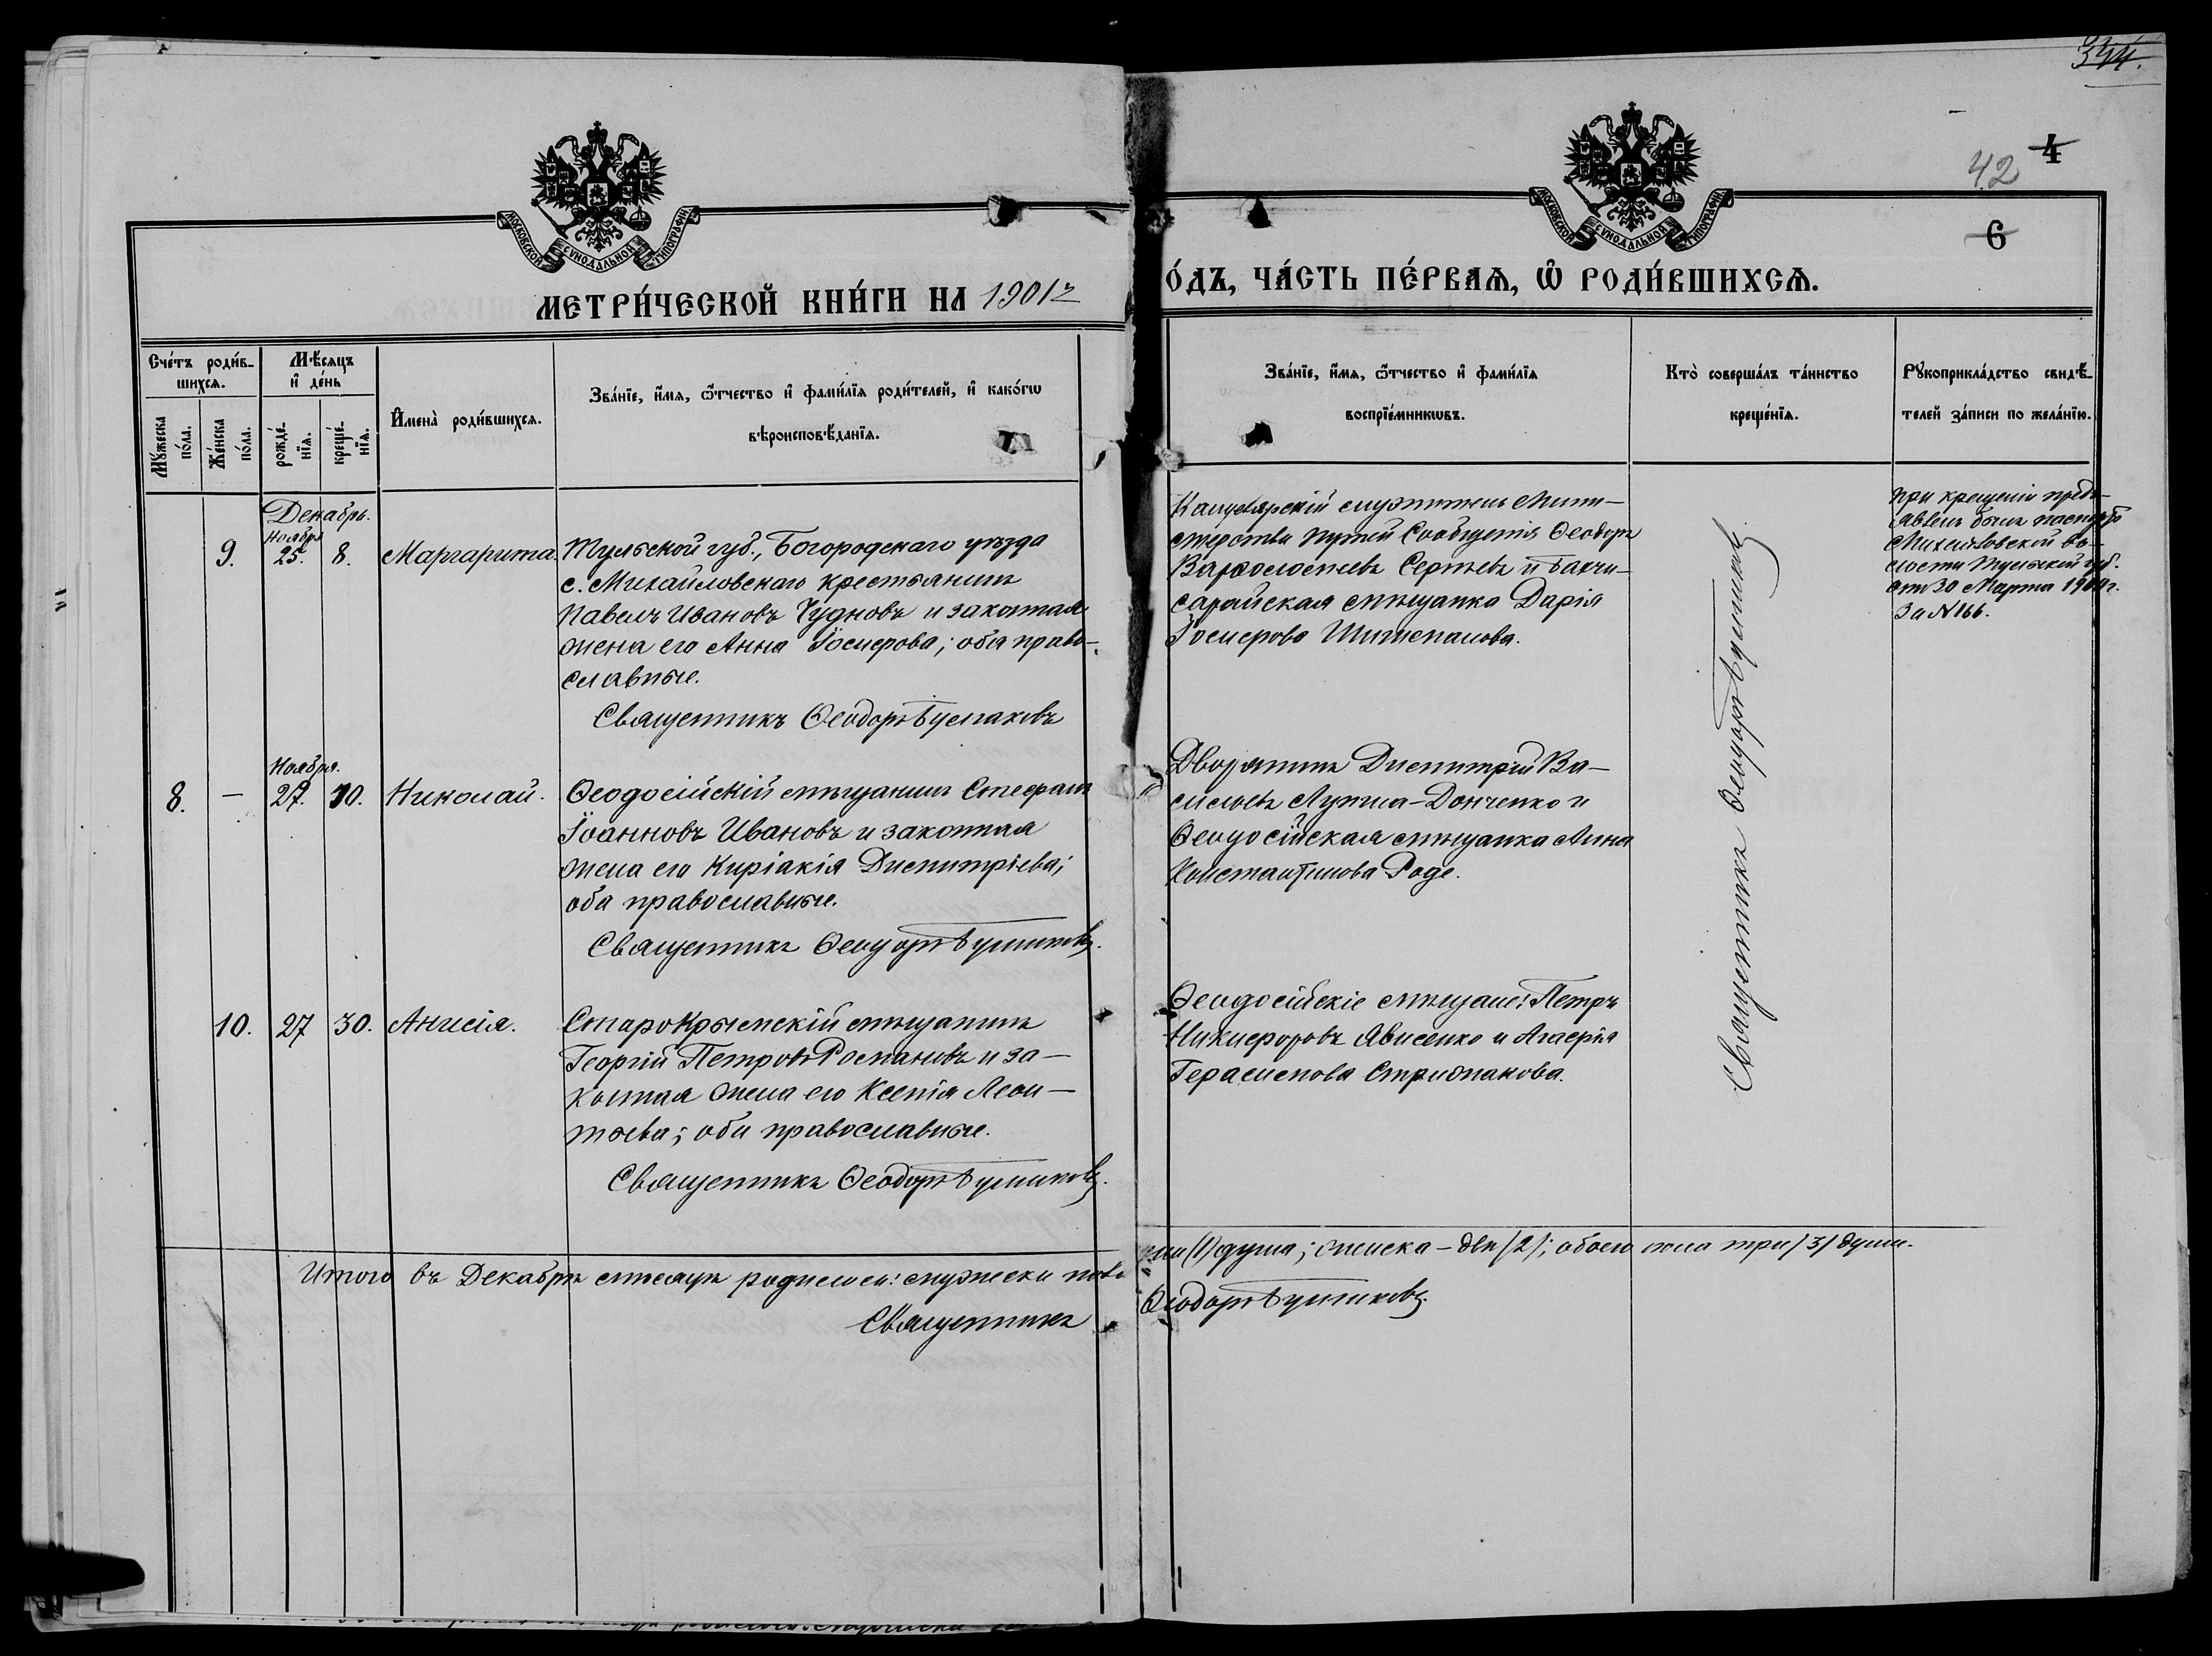 344.
42 4
6
МОСКОВСКОЙ СѴНОДАЛЬНОЙ ТИПОГРАФІИ
МОСКОВСКОЙ СѴНОДАЛЬНОЙ ТИПОГРАФІИ
МЕТРИ́ЧЕСКОЙ КНИ́ГИ НА 1901 г
О́ДЪ, ЧА́СТЬ ПЕ́РВАѦ, Ѡ҆ РОДИ́ВШИХСѦ.
Сче́тъ роди́в-
шихсѧ.
Мꙋ́жеска
по́ла.
Же́нска
по́ла.
Мѣ́сѧцъ
и҆ де́нь
рожде́-
нїѧ.
креще́-
нїѧ.
И҆мена̀ роди́вшихсѧ.
Зва́нїе, и҆́мѧ, ѻ҆́тчество и҆ фами́лїѧ роди́телей, и҆ како́гѡ
вѣроисповѣ́данїѧ.
Зва́нїе, и҆́мѧ, ѻ҆́тчество и҆ фами́лїѧ
воспрїе́мникѡвъ.
Кто̀ соверша́лъ та́инство
креще́нїѧ.
Рꙋкоприкла́дство свидѣ́-
телей за́писи по жела́нїю.
Декабрь.
Ноября
9. 25. 8. Маргарита.
Тульской губ., Богородскаго уѣзда
с. Михайловскаго крестьянинъ
Павелъ Ивановъ Чудновъ и законная
жена его Анна Іосифова; оба право-
славные.
Священникъ Ѳеодоръ Бушмаковъ
Канцелярскій служитель Мини-
стерства Путей Сообщенія Ѳеодоръ
Варѳоломѣевъ Сергѣевъ и Бахчи-
сарайская мѣщанка Дарія
Іосифова
При крещеніи предъ-
явленъ былъ паспортъ
Михайловской во-
лости Тульской губ.
отъ 30 Марта
За № 166.
Ноября.
8. — 27. 30. Николай.
Ѳеодосійскій мѣщанинъ Стефанъ
Іоанновъ Ивановъ и законная
жена его Киріакія Димитріева;
оба православные.
Священникъ Ѳеодоръ Бушмаковъ.
Дворянинъ Димитрій Ва-
сильевъ Лупша-Донченко и
Ѳеодосійская мѣщанка Анна
Константинова Роде.
10. 27 30. Анисія.
Старокрымскій мѣщанинъ
Георгій Петровъ Романовъ и за-
конная жена его Ксенія Леон-
тьева; оба православные.
Священникъ Ѳеодоръ Бушмаковъ.
Ѳеодосійскіе мѣщане: Петръ
Никифоровъ Явисенко и Агаѳія
Герасимова
Священникъ Ѳеодоръ Бушмаковъ
Итого въ Декабрѣ мѣсяцѣ родилось: мужеска пола
одна (1) душа; женска – двѣ (2); обоего пола три (3) души.
Священникъ
Ѳеодоръ Бушмаковъ.